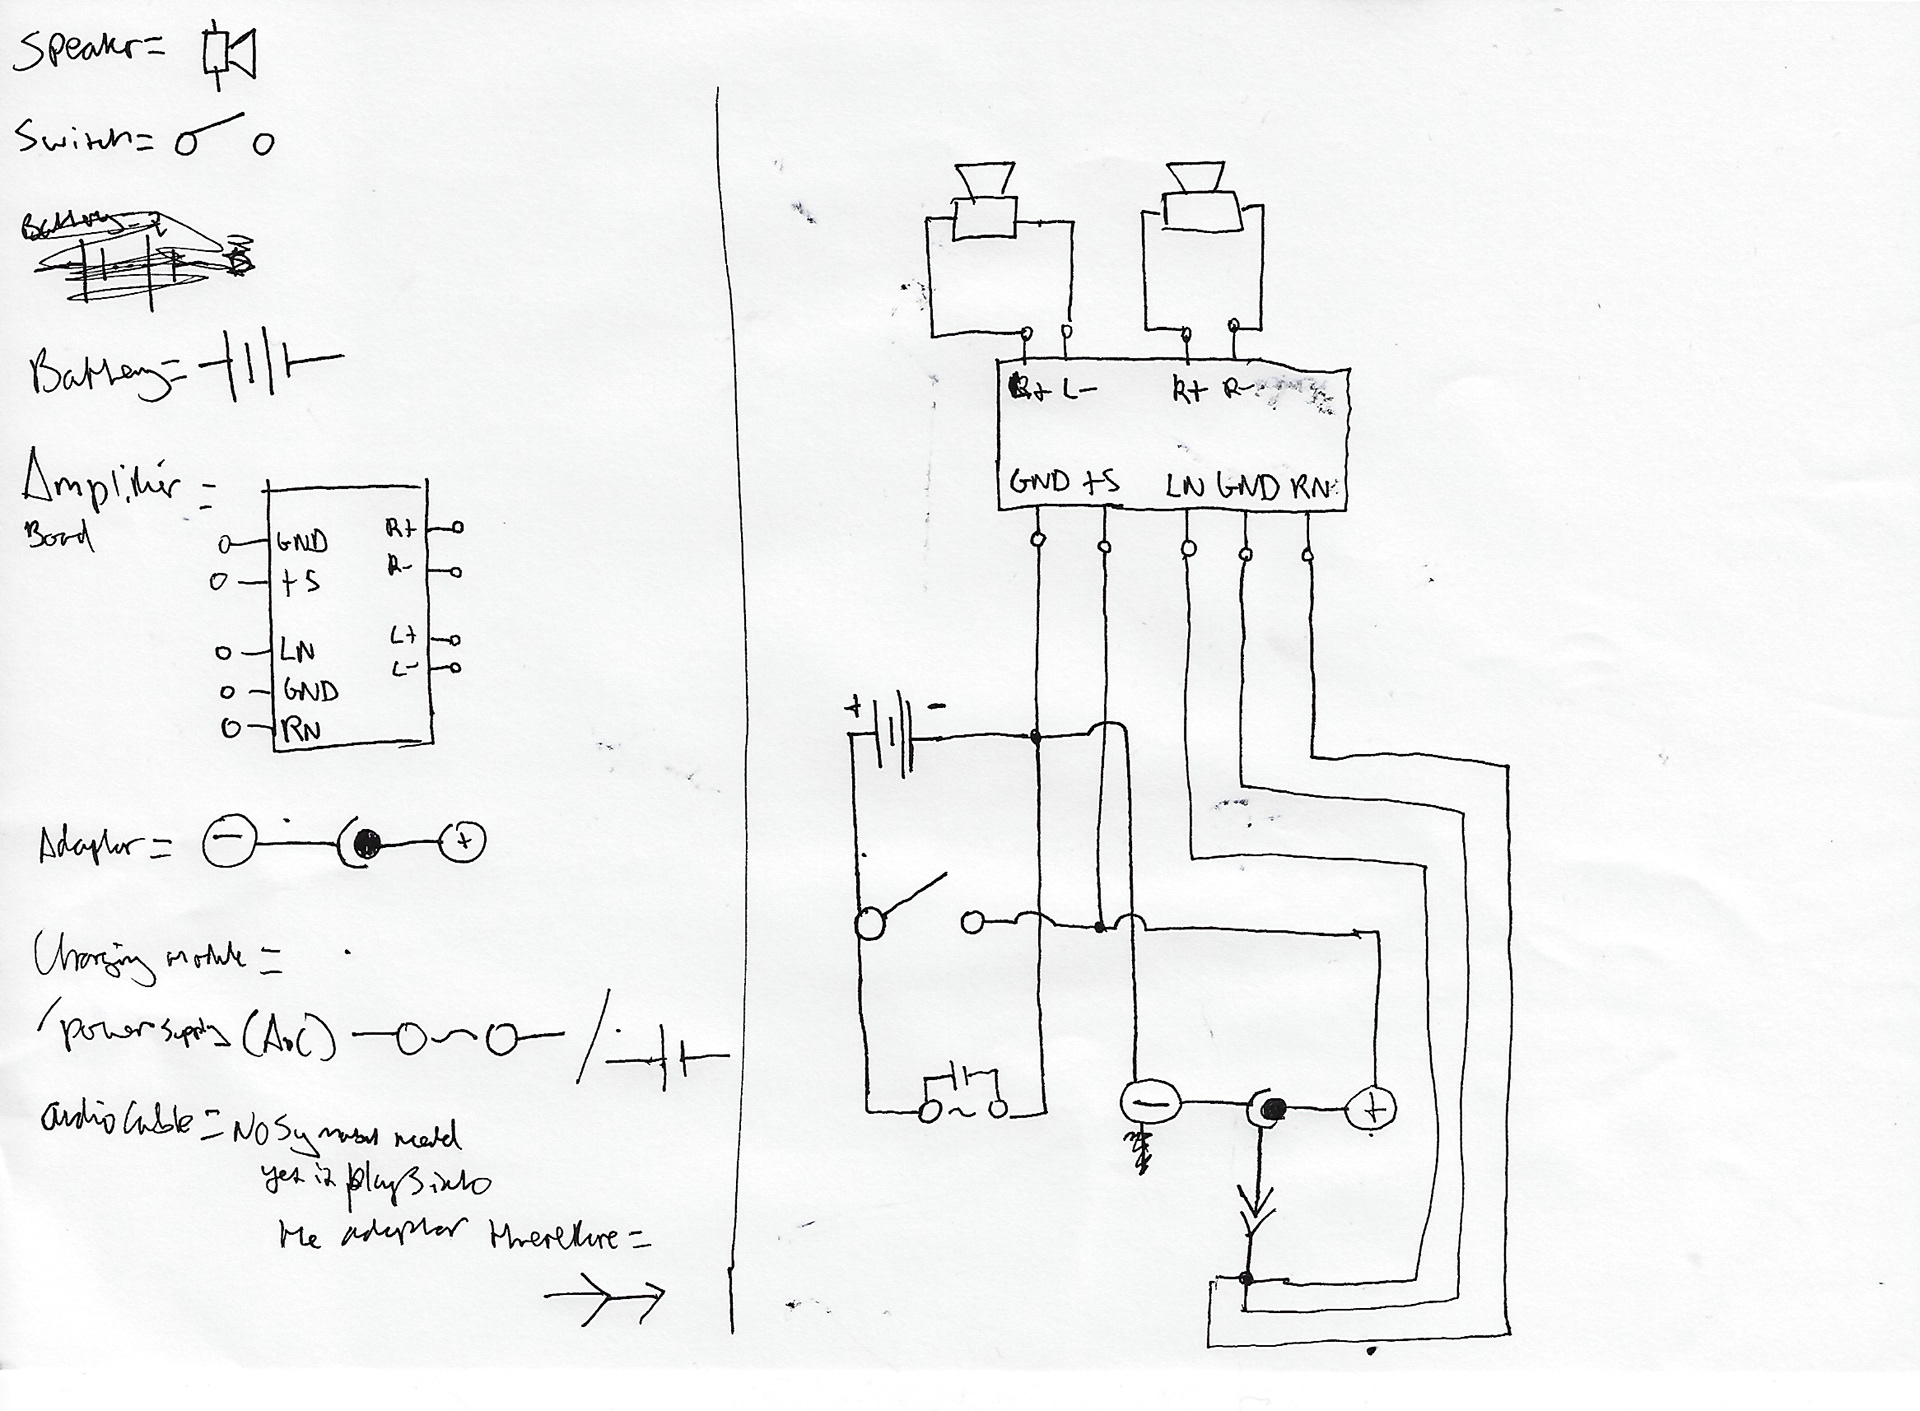 Speakr=
Switch=
Battery=
Amplifier =
Boad
GND R+
+5 R-
LN L+
GND L-
RN
Adaptor =
- +
Charging module =
/power supply (AoC) /
audio Cable = NO Symbol need
yet it plays into
the adaptor therefore =
R+ L- R+ R-
GND +5 LN GND RN
+ -
- +